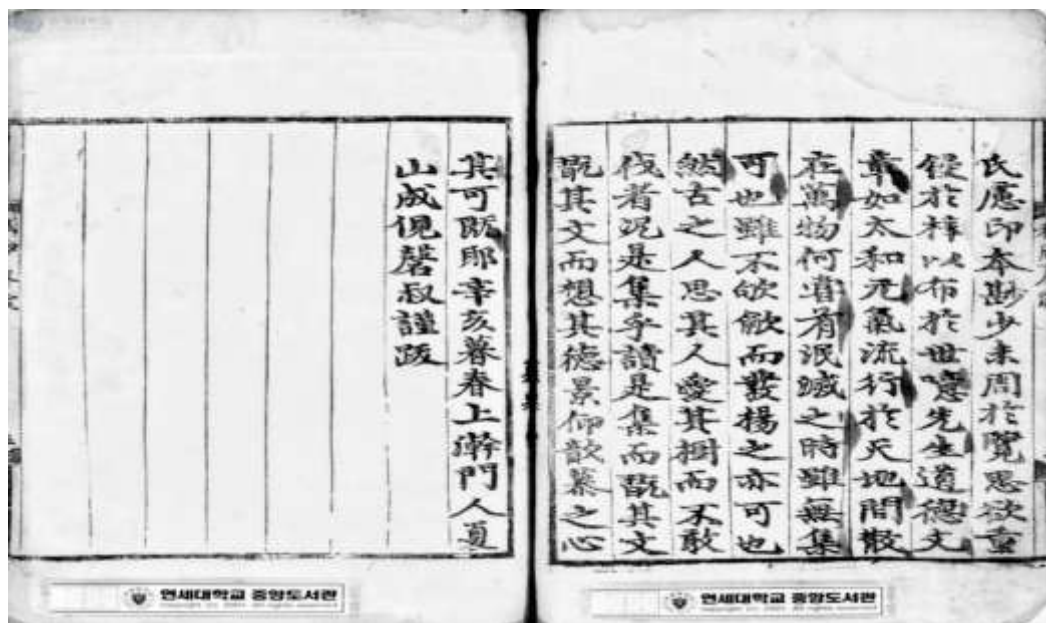 氏慮印本尠少未周於覽思欲重
鋟於梓以布於世噫先生道德文
章如太和元氣流行於天地間散
在萬物何嘗有泯滅之時雖無集
可也雖不歆而發揚之亦可也
然古之人思其人愛其樹而不敢
伐者况是集乎讀是集而翫其文
翫其文而想其德景仰歆慕之心
其可既耶辛亥暮春上澣門人夏
山成俔磬叔謹跋
연세대학교 중앙도서관
연세대학교 중앙도서관